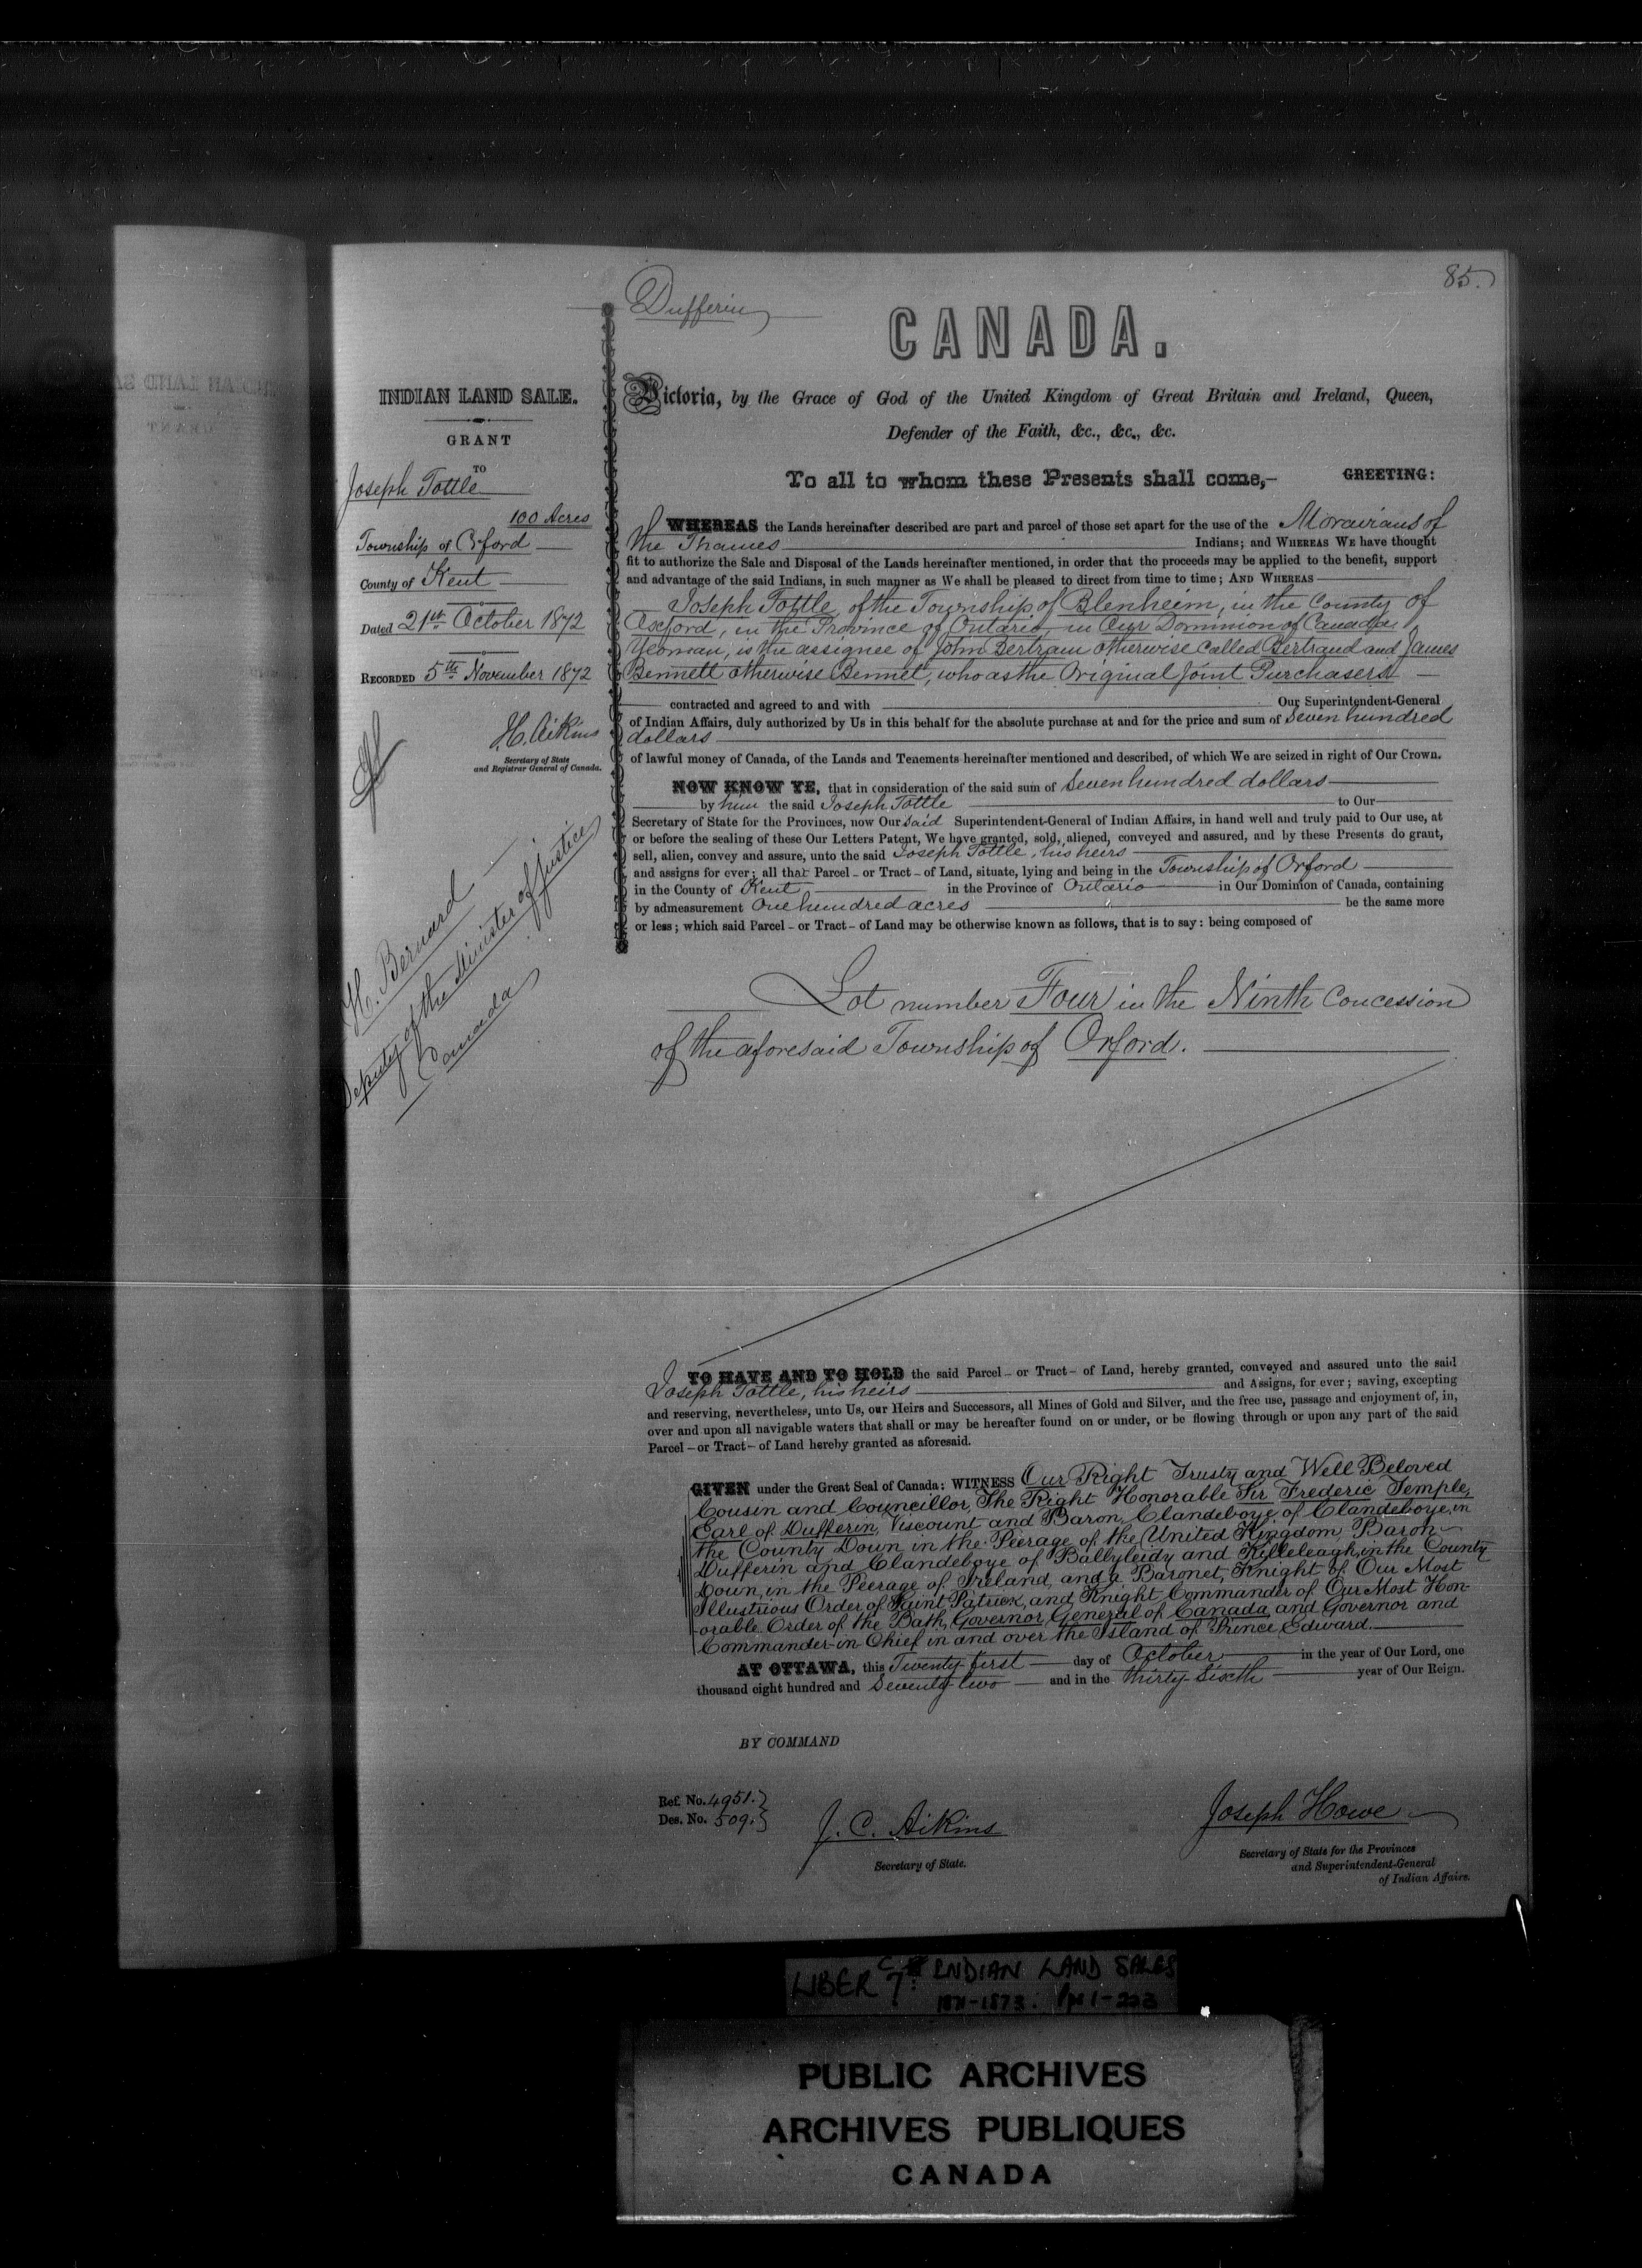 85.
Dufferin
CANADA.
Victoria, by the Grace of God of the United Kingdom of Great Britain and Ireland, Queen,
Defender of the Faith, &c., &c., &c.
To all to whom these Presents shall come,— GREETING:
INDIAN LAND SALE.
GRANT
TO
Joseph Tottle
100 Acres
Township of Orford
County of Kent
Dated 21st October 1872
RECORDED 5th November 1872
Aikins
Secretary of State
and Registrar General of Canada.
H. Bernard
Deputy of the Minister of Justice
Canada
WHEREAS the Lands hereinafter described are part and parcel of those set apart for the use of the Moravians of
the Thames Indians; and WHEREAS WE have thought
fit to authorize the Sale and Disposal of the Lands hereinafter mentioned, in order that the proceeds may be applied to the benefit, support
and advantage of the said Indians, in such manner as We shall be pleased to direct from time to time; AND WHEREAS
Joseph Tottle, of the Township of Blenheim, in the County of
Oxford, in the Province of Ontario, in Our Dominion of Canada,
Yeoman, is the assignee of John Bertram otherwise called Bertrand and James
Bennett otherwise Bennet, who as the Original Joint Purchasers
contracted and agreed to and with Our Superintendent-General
of Indian Affairs, duly authorized by Us in this behalf for the absolute purchase at and for the price and sum of Seven hundred
dollars
of lawful money of Canada, of the Lands and Tenements hereinafter mentioned and described, of which We are seized in right of Our Crown.
NOW KNOW YE, that in consideration of the said sum of Seven hundred dollars
by him the said Joseph Tottle to Our
Secretary of State for the Provinces, now Our said Superintendent-General of Indian Affairs, in hand well and truly paid to Our use, at
or before the sealing of these Our Letters Patent, We have granted, sold, aliened, conveyed and assured, and by these Presents do grant,
sell, alien, convey and assure, unto the said Joseph Tottle, his heirs
and assigns for ever; all that Parcel - or Tract - of Land, situate, lying and being in the Township of Orford
in the County of Kent in the Province of Ontario in Our Dominion of Canada, containing
by admeasurement One hundred acres be the same more
or less; which said Parcel - or Tract - of Land may be otherwise known as follows, that is to say: being composed of
Lot number Four in the Ninth Concession
of the aforesaid Township of Orford.
TO HAVE AND TO HOLD the said Parcel - or Tract - of Land, hereby granted, conveyed and assured unto the said
Joseph Tottle, his heirs and Assigns, for ever; saving, excepting
and reserving, nevertheless, unto Us, our Heirs and Successors, all Mines of Gold and Silver, and the free use, passage and enjoyment of, in,
over and upon all navigable waters that shall or may be hereafter found on or under, or be flowing through or upon any part of the said
Parcel - or Tract - of Land hereby granted as aforesaid.
GIVEN under the Great Seal of Canada: WITNESS Our Right Trusty and Well Beloved
Cousin and Councillor, The Right Honorable Sir Frederic Temple,
Earl of Dufferin, Viscount and Baron Clandeboye of Clandeboye, in
the County Down in the Peerage of the United Kingdom, Baron
Dufferin and Clandeboye of Ballyleidy and Killeleagh, in the County
Down, in the Peerage of Ireland, and a Baronet, Knight of Our Most
Illustrious Order of Saint Patrick, and Knight Commander of Our Most Hon-
orable Order of the Bath, Governor General of Canada, and Governor and
Commander-in-Chief in and over the Island of Prince Edward.
AT OTTAWA, this Twenty-first day of October in the year of Our Lord, one
thousand eight hundred and Seventy-two and in the thirty-sixth year of Our Reign.
BY COMMAND
Ref. No. 4951.
Des. No. 509.
J. C. Aikins
Secretary of State.
Joseph Howe
Secretary of State for the Provinces
and Superintendent-General
of Indian Affairs.
LIBER C 7: INDIAN LAND SALES
1871-1873. 1-223
PUBLIC ARCHIVES
ARCHIVES PUBLIQUES
CANADA